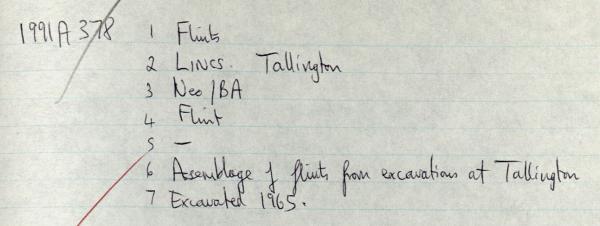 1991A 378 1 Flints
2 LINCS. Tallington
3 Neo/BA
4 Flint
5 —
6 Assemblage of flints from excavations at Tallington
7 Excavated 1965.